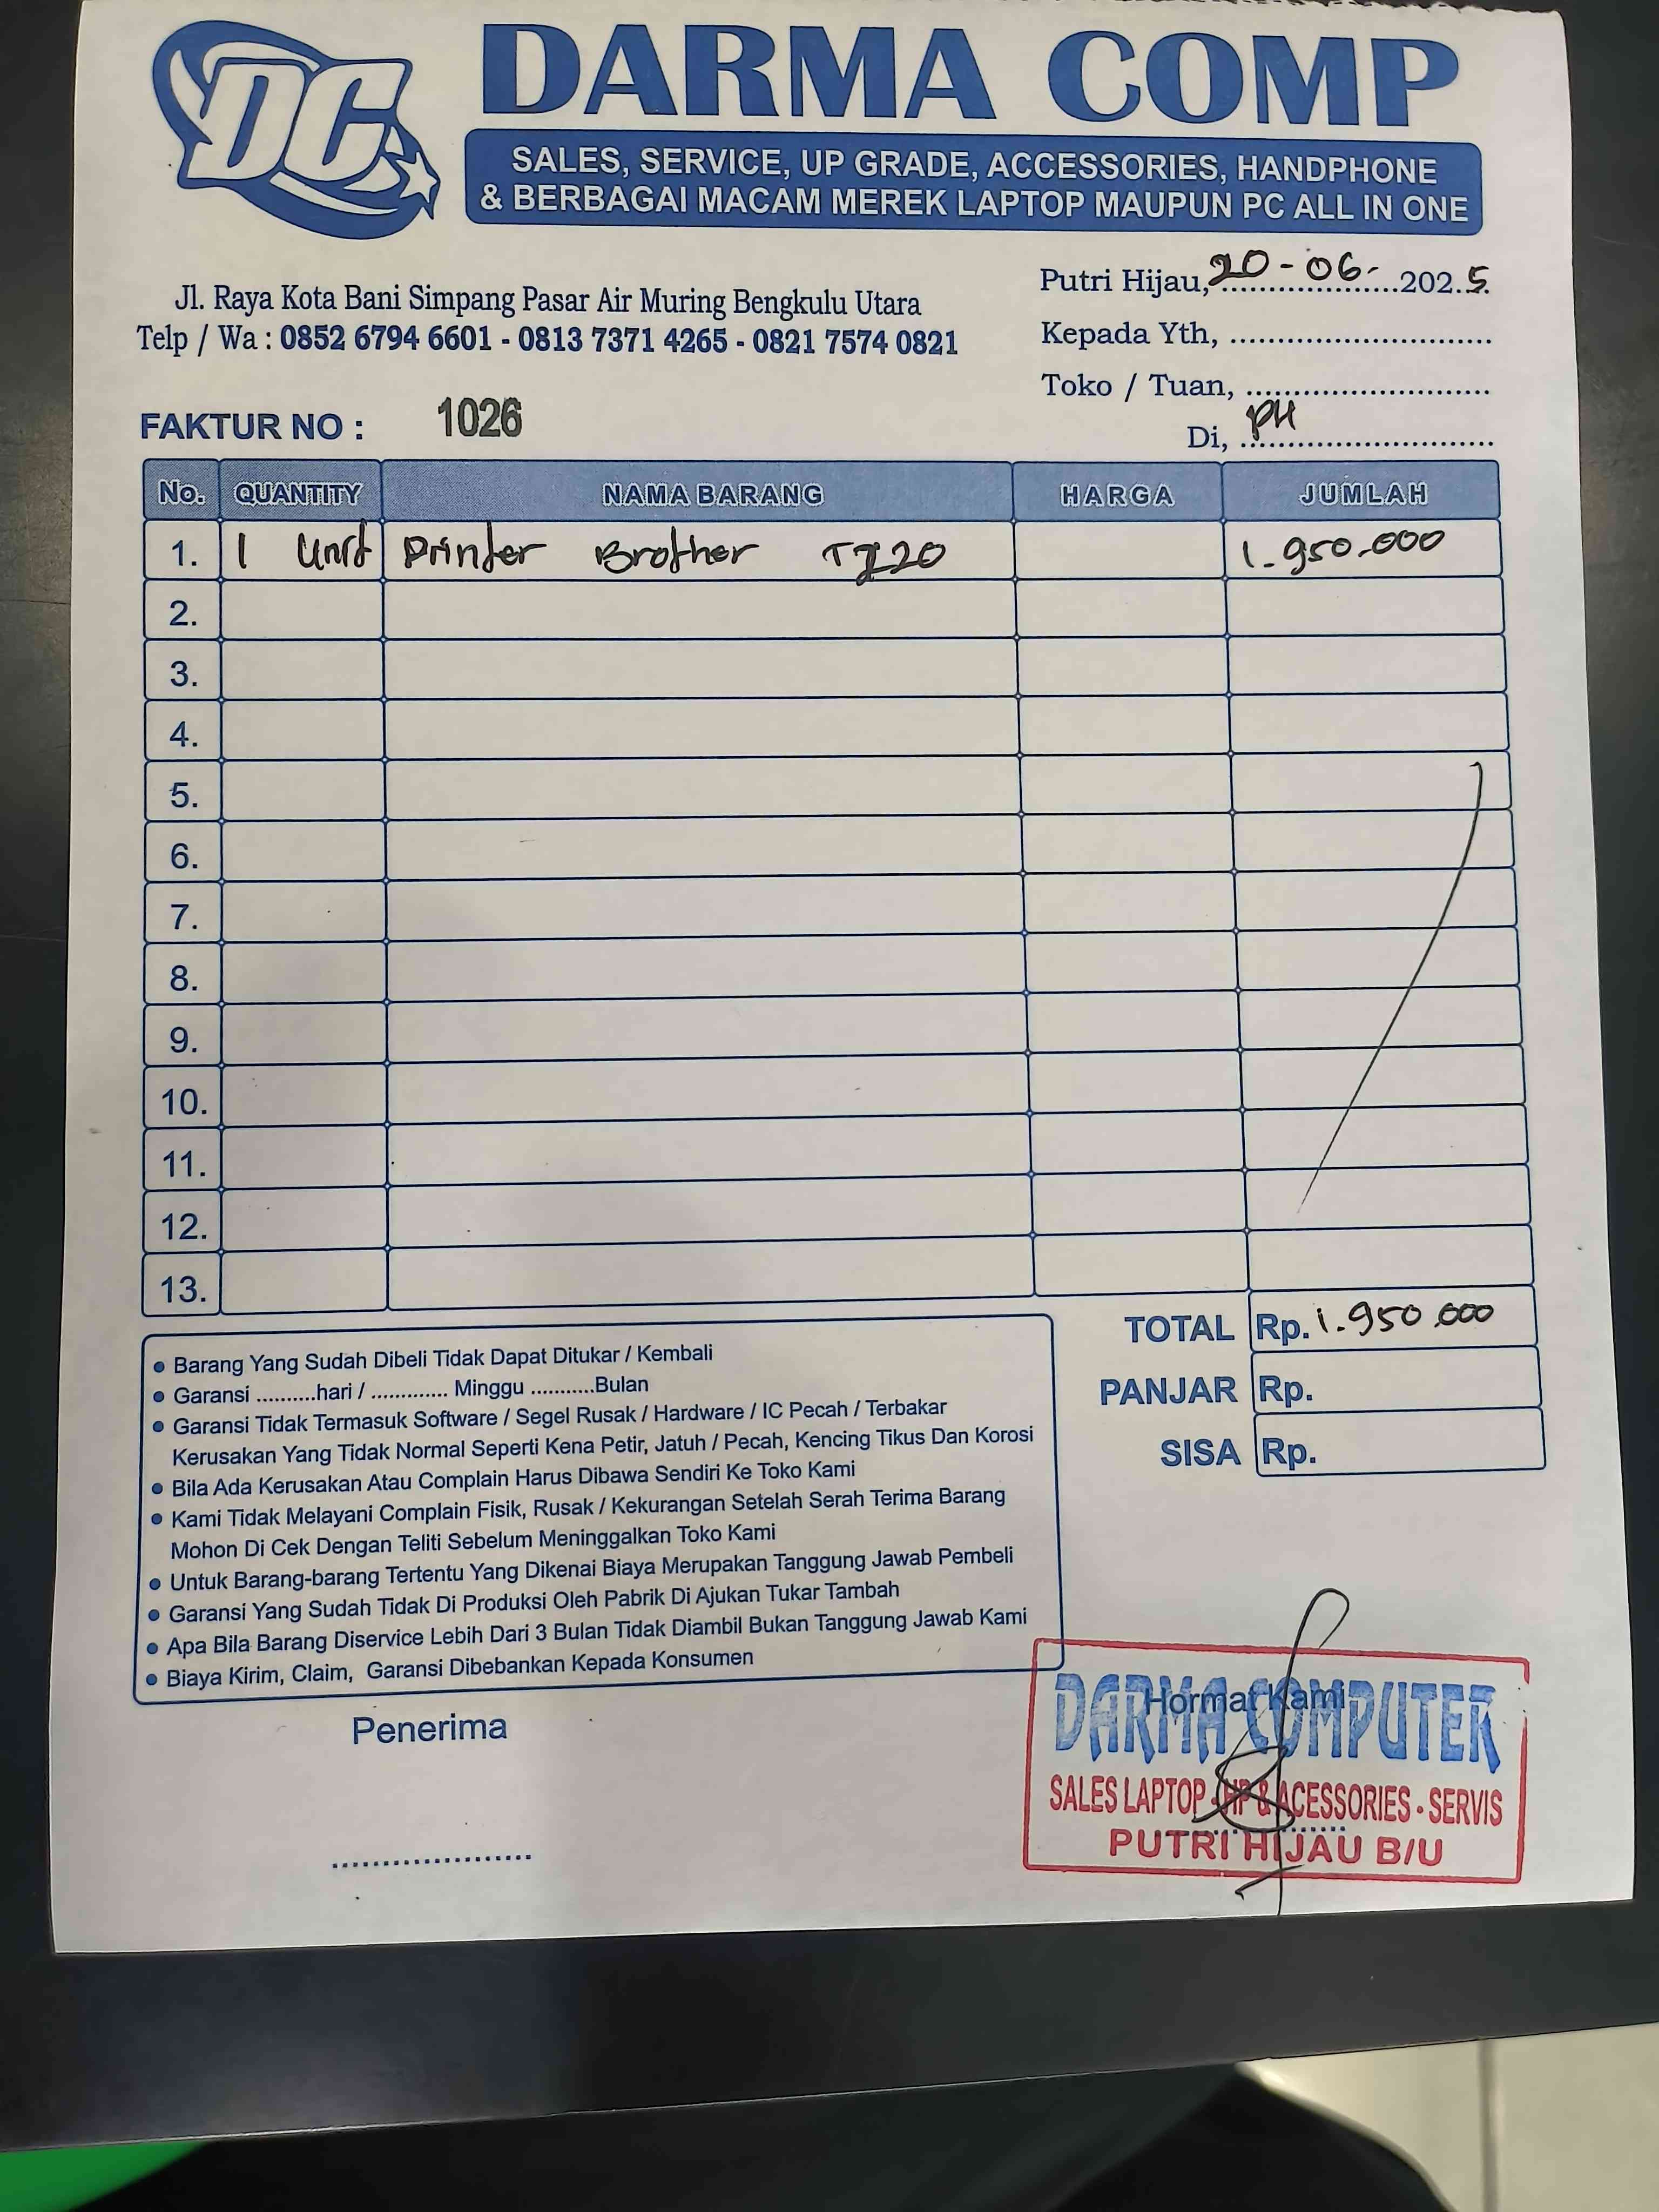 DC
DARMA COMP
SALES, SERVICE, UP GRADE, ACCESSORIES, HANDPHONE
& BERBAGAI MACAM MEREK LAPTOP MAUPUN PC ALL IN ONE
Jl. Raya Kota Bani Simpang Pasar Air Muring Bengkulu Utara
Telp / Wa : 0852 6794 6601 - 0813 7371 4265 - 0821 7574 0821
Putri Hijau, 20-06- 2025
Kepada Yth, ............................
Toko / Tuan, ..........................
Di, PH
FAKTUR NO : 1026
No. QUANTITY NAMA BARANG HARGA JUMLAH
1. 1 Unit Printer Brother 1.950.000
2.
3.
4.
5.
6.
7.
8.
9.
10.
11.
12.
13.
TOTAL Rp. 1.950.000
PANJAR Rp.
SISA Rp.
• Barang Yang Sudah Dibeli Tidak Dapat Ditukar / Kembali
• Garansi ..........hari / ............. Minggu ...........Bulan
• Garansi Tidak Termasuk Software / Segel Rusak / Hardware / IC Pecah / Terbakar
Kerusakan Yang Tidak Normal Seperti Kena Petir, Jatuh / Pecah, Kencing Tikus Dan Korosi
• Bila Ada Kerusakan Atau Complain Harus Dibawa Sendiri Ke Toko Kami
• Kami Tidak Melayani Complain Fisik, Rusak / Kekurangan Setelah Serah Terima Barang
Mohon Di Cek Dengan Teliti Sebelum Meninggalkan Toko Kami
• Untuk Barang-barang Tertentu Yang Dikenai Biaya Merupakan Tanggung Jawab Pembeli
• Garansi Yang Sudah Tidak Di Produksi Oleh Pabrik Di Ajukan Tukar Tambah
• Apa Bila Barang Diservice Lebih Dari 3 Bulan Tidak Diambil Bukan Tanggung Jawab Kami
• Biaya Kirim, Claim, Garansi Dibebankan Kepada Konsumen
Penerima
Hormat Kami
DARMA COMPUTER
SALES LAPTOP - HP & ACESSORIES - SERVIS
PUTRI HIJAU B/U